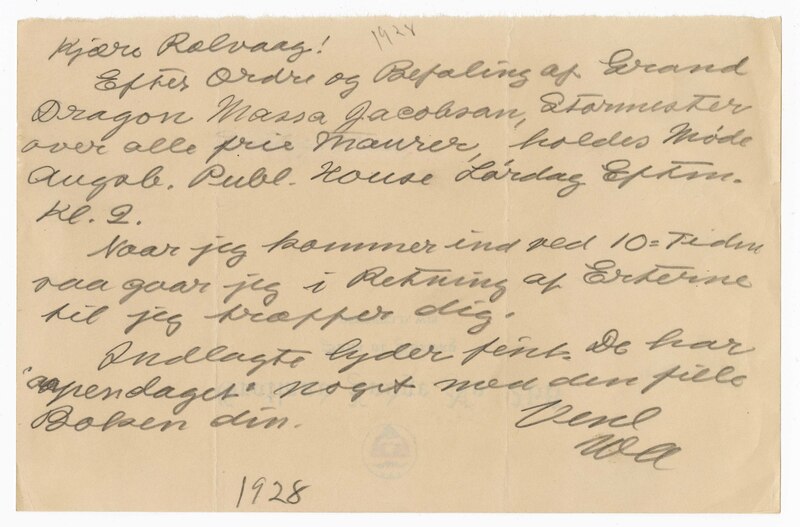 1928
Kjære Rølvaag!
Efter Ordre og Befaling af Grand
Dragon Massa Jacobsan, Stormester
over alle frie Maurer, holdes Møde
Augsb. Publ. House Lørdag Eftm.
Kl. 2.
Naar jeg kommer ind ved 10=Tiden
saa gaar jeg i Retning af Erterne
til jeg træffer dig.
Indlagte lyder fint. De har
opendaget noget med den fille
Boken din.
Venl
1928